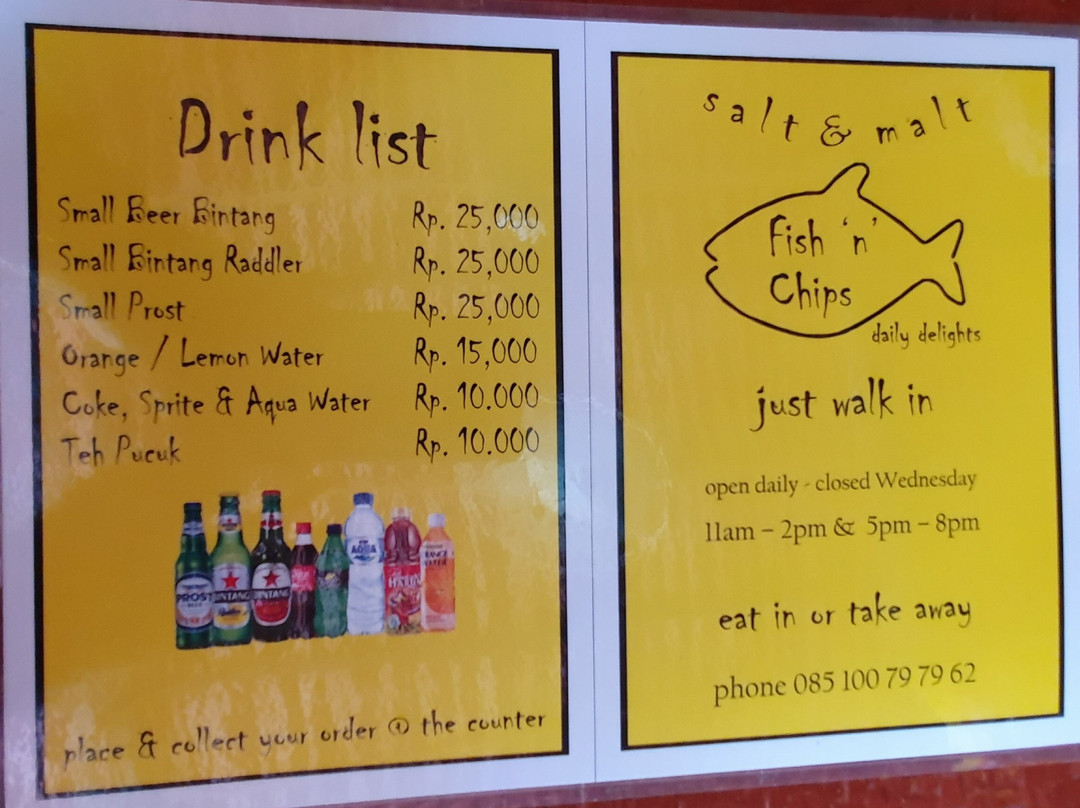 Drink list
Small Beer Bintang Rp. 25,000
Small Bintang Raddler Rp. 25,000
Small Prost Rp. 25,000
Orange / Lemon Water Rp. 15,000
Coke, Sprite & Aqua Water Rp. 10.000
Teh Pucuk Rp. 10.000
PROST
BINTANG
BINTANG
AQUA
place & collect your order @ the counter
salt & malt
Fish 'n'
Chips
daily delights
just walk in
open daily - closed Wednesday
11am – 2pm & 5pm – 8pm
eat in or take away
phone 085 100 79 79 62